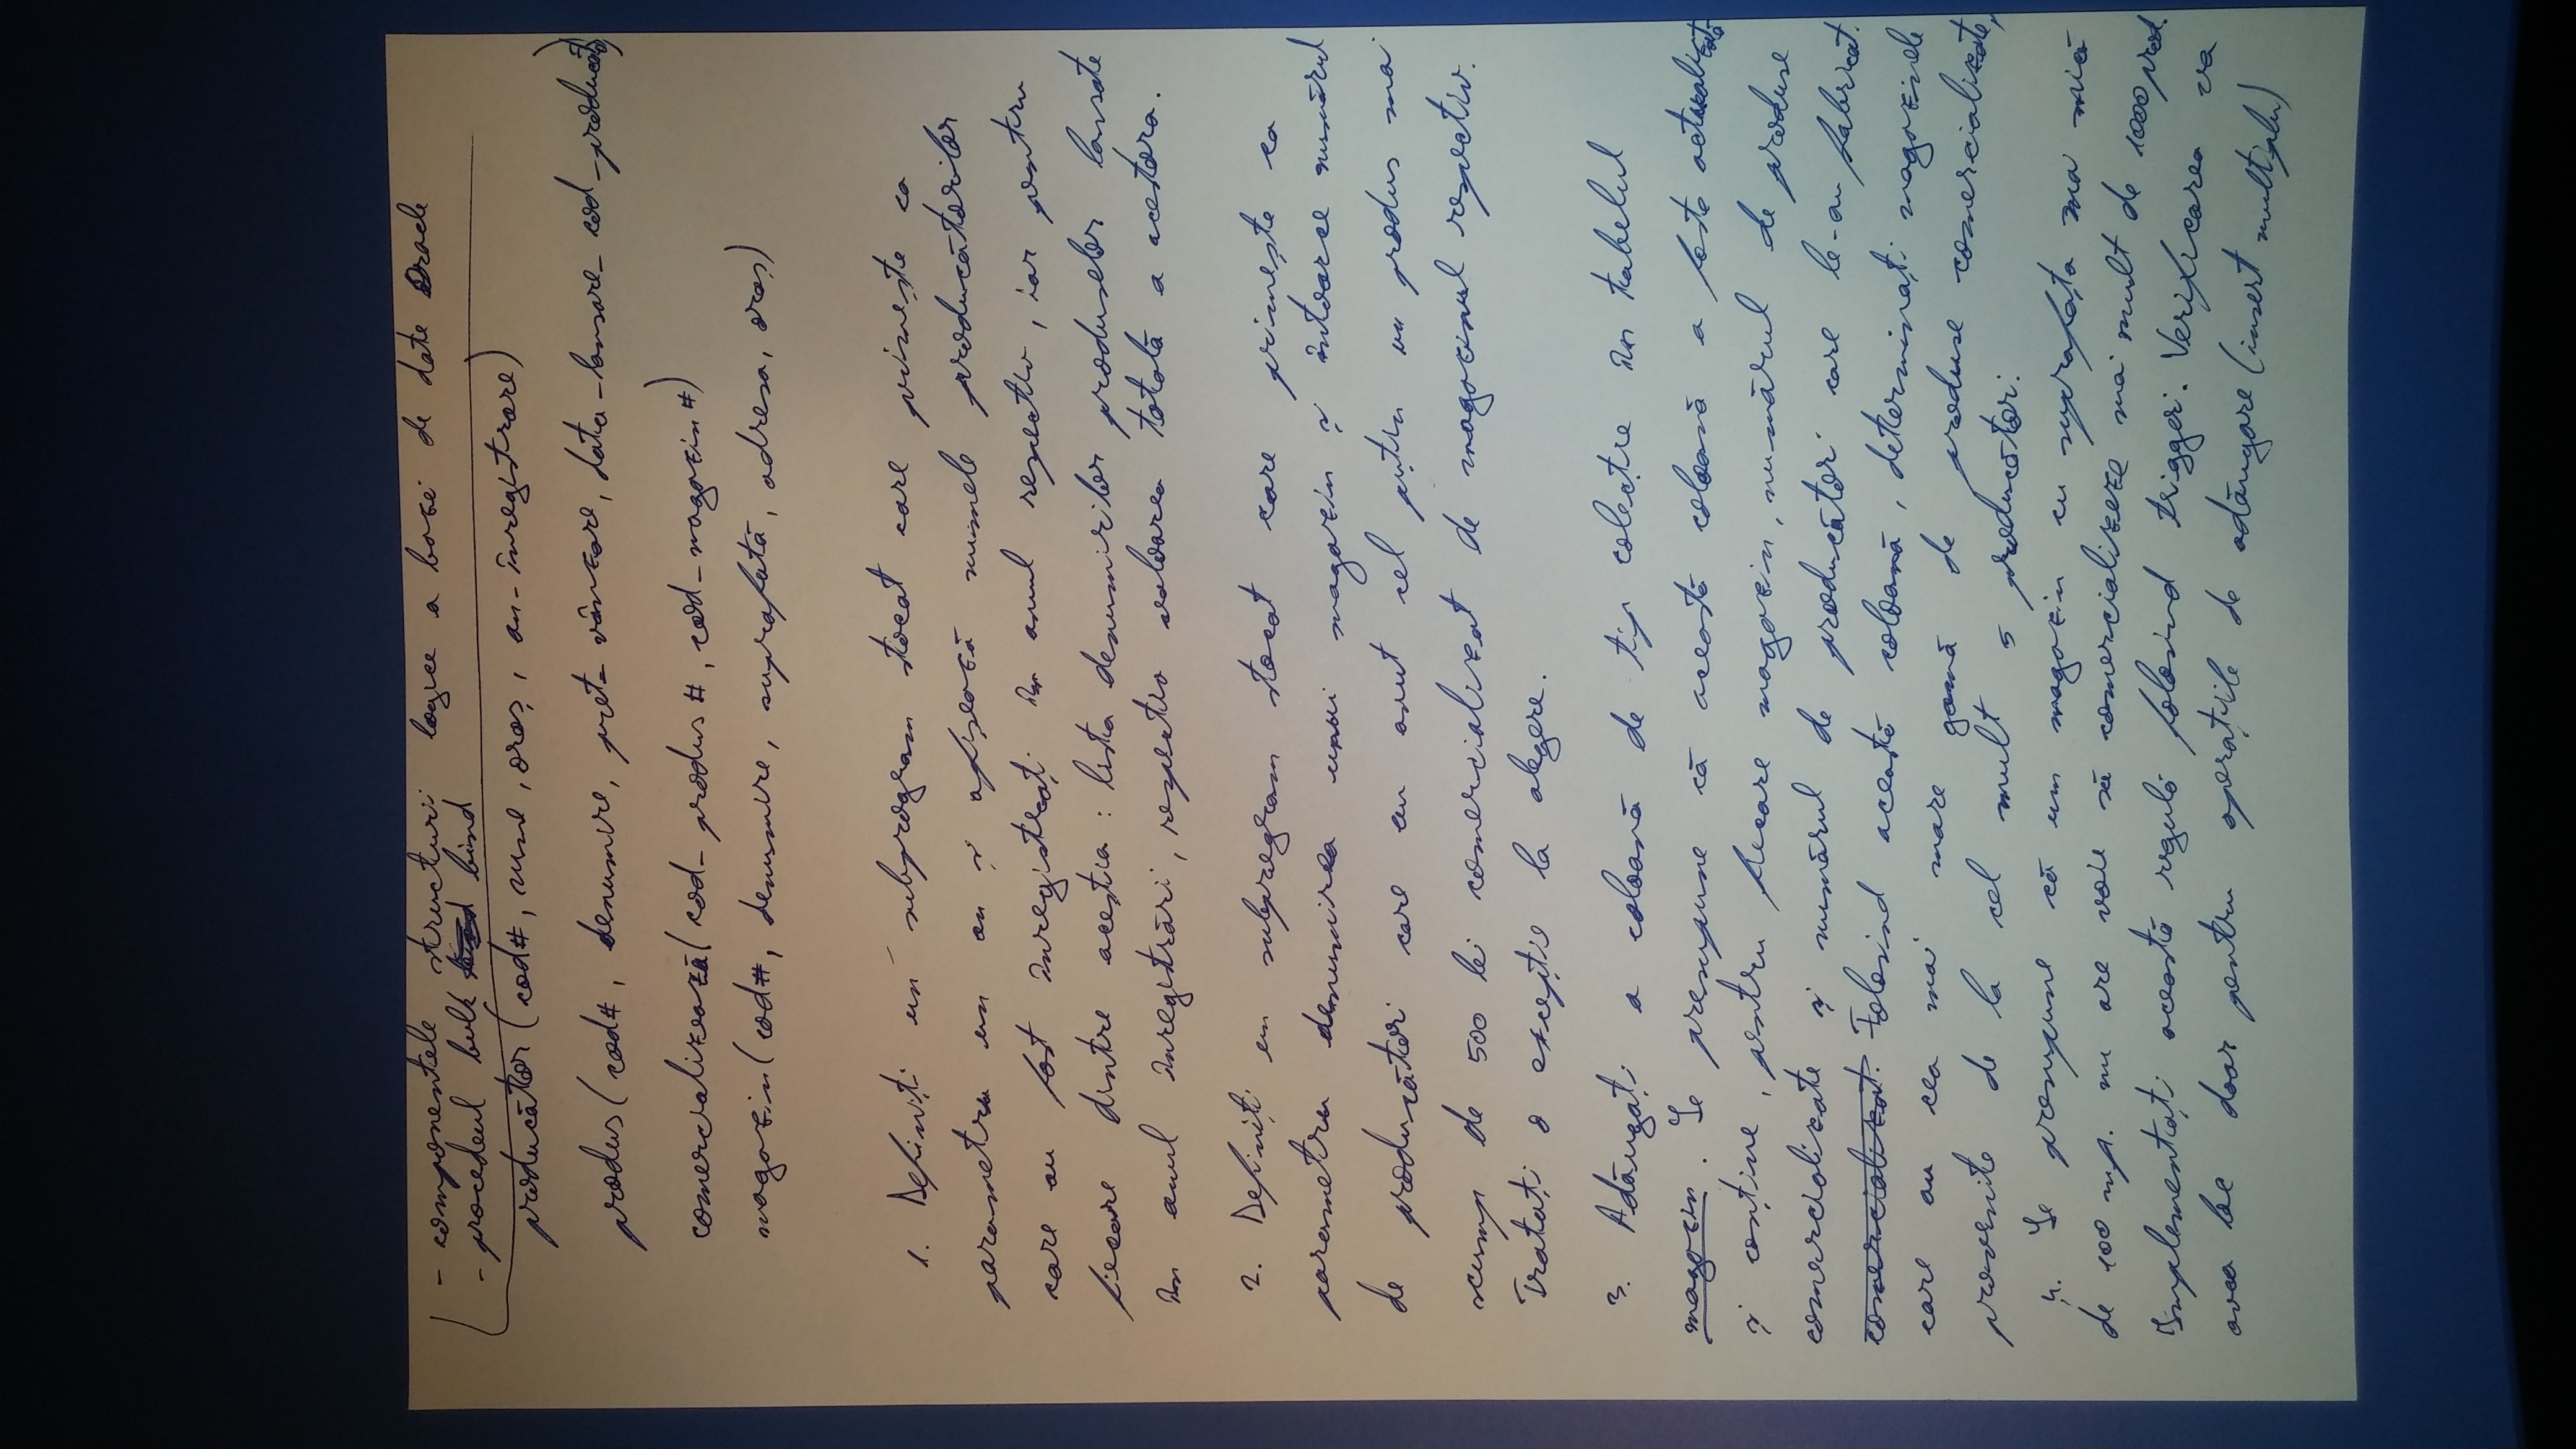 - componentele structurii logice a bazei de date Oracle
- procedeul bulk bind
producător (cod#, nume, oraș, an-înregistrare)
produs (cod#, denumire, pret-vânzare, data-lansare-cod-producător)
comercializează (cod-produs#, cod-magazin#)
magazin (cod#, denumire, suprafată, adresa, oraș)
1. Definiți un subprogram stocat care primește ca
parametru un an și afișează numele producătorilor
care au fost înregistrați în anul respectiv, iar pentru
fiecare dintre aceștia: lista denumirilor produselor lansate
în anul înregistrări, respectiv valoarea totală a acestora.
2. Definiți un subprogram stocat care primește ca
parametru denumirea unui magazin și întoarce numărul
de producători care au avut cel puțin un produs mai
scump de 500 lei comercializat de magazinul respectiv.
Tratați o excepție la alegere.
3. Adăugați o coloană de tip colecție în tabelul
magazin. Se presupune că această coloană a foste actualizată
și conține, pentru fiecare magazin, numărul de produse
comercializate și numărul de producători care le-au fabricat.
comercializat. Folosind această coloană, determinați magazinele
care au cea mai mare gamă de produse comercializate,
provenite de la cel mult 5 producători.
4. Se presupune că um magazin cu suprafața mai mică
de 100 mp. nu are voie să comercializeze mai mult de 1000 prod.
Implementați această regulă folosind triggeri. Verificarea va
avea loc doar pentru operațiile de adăugare (insert multiplu)